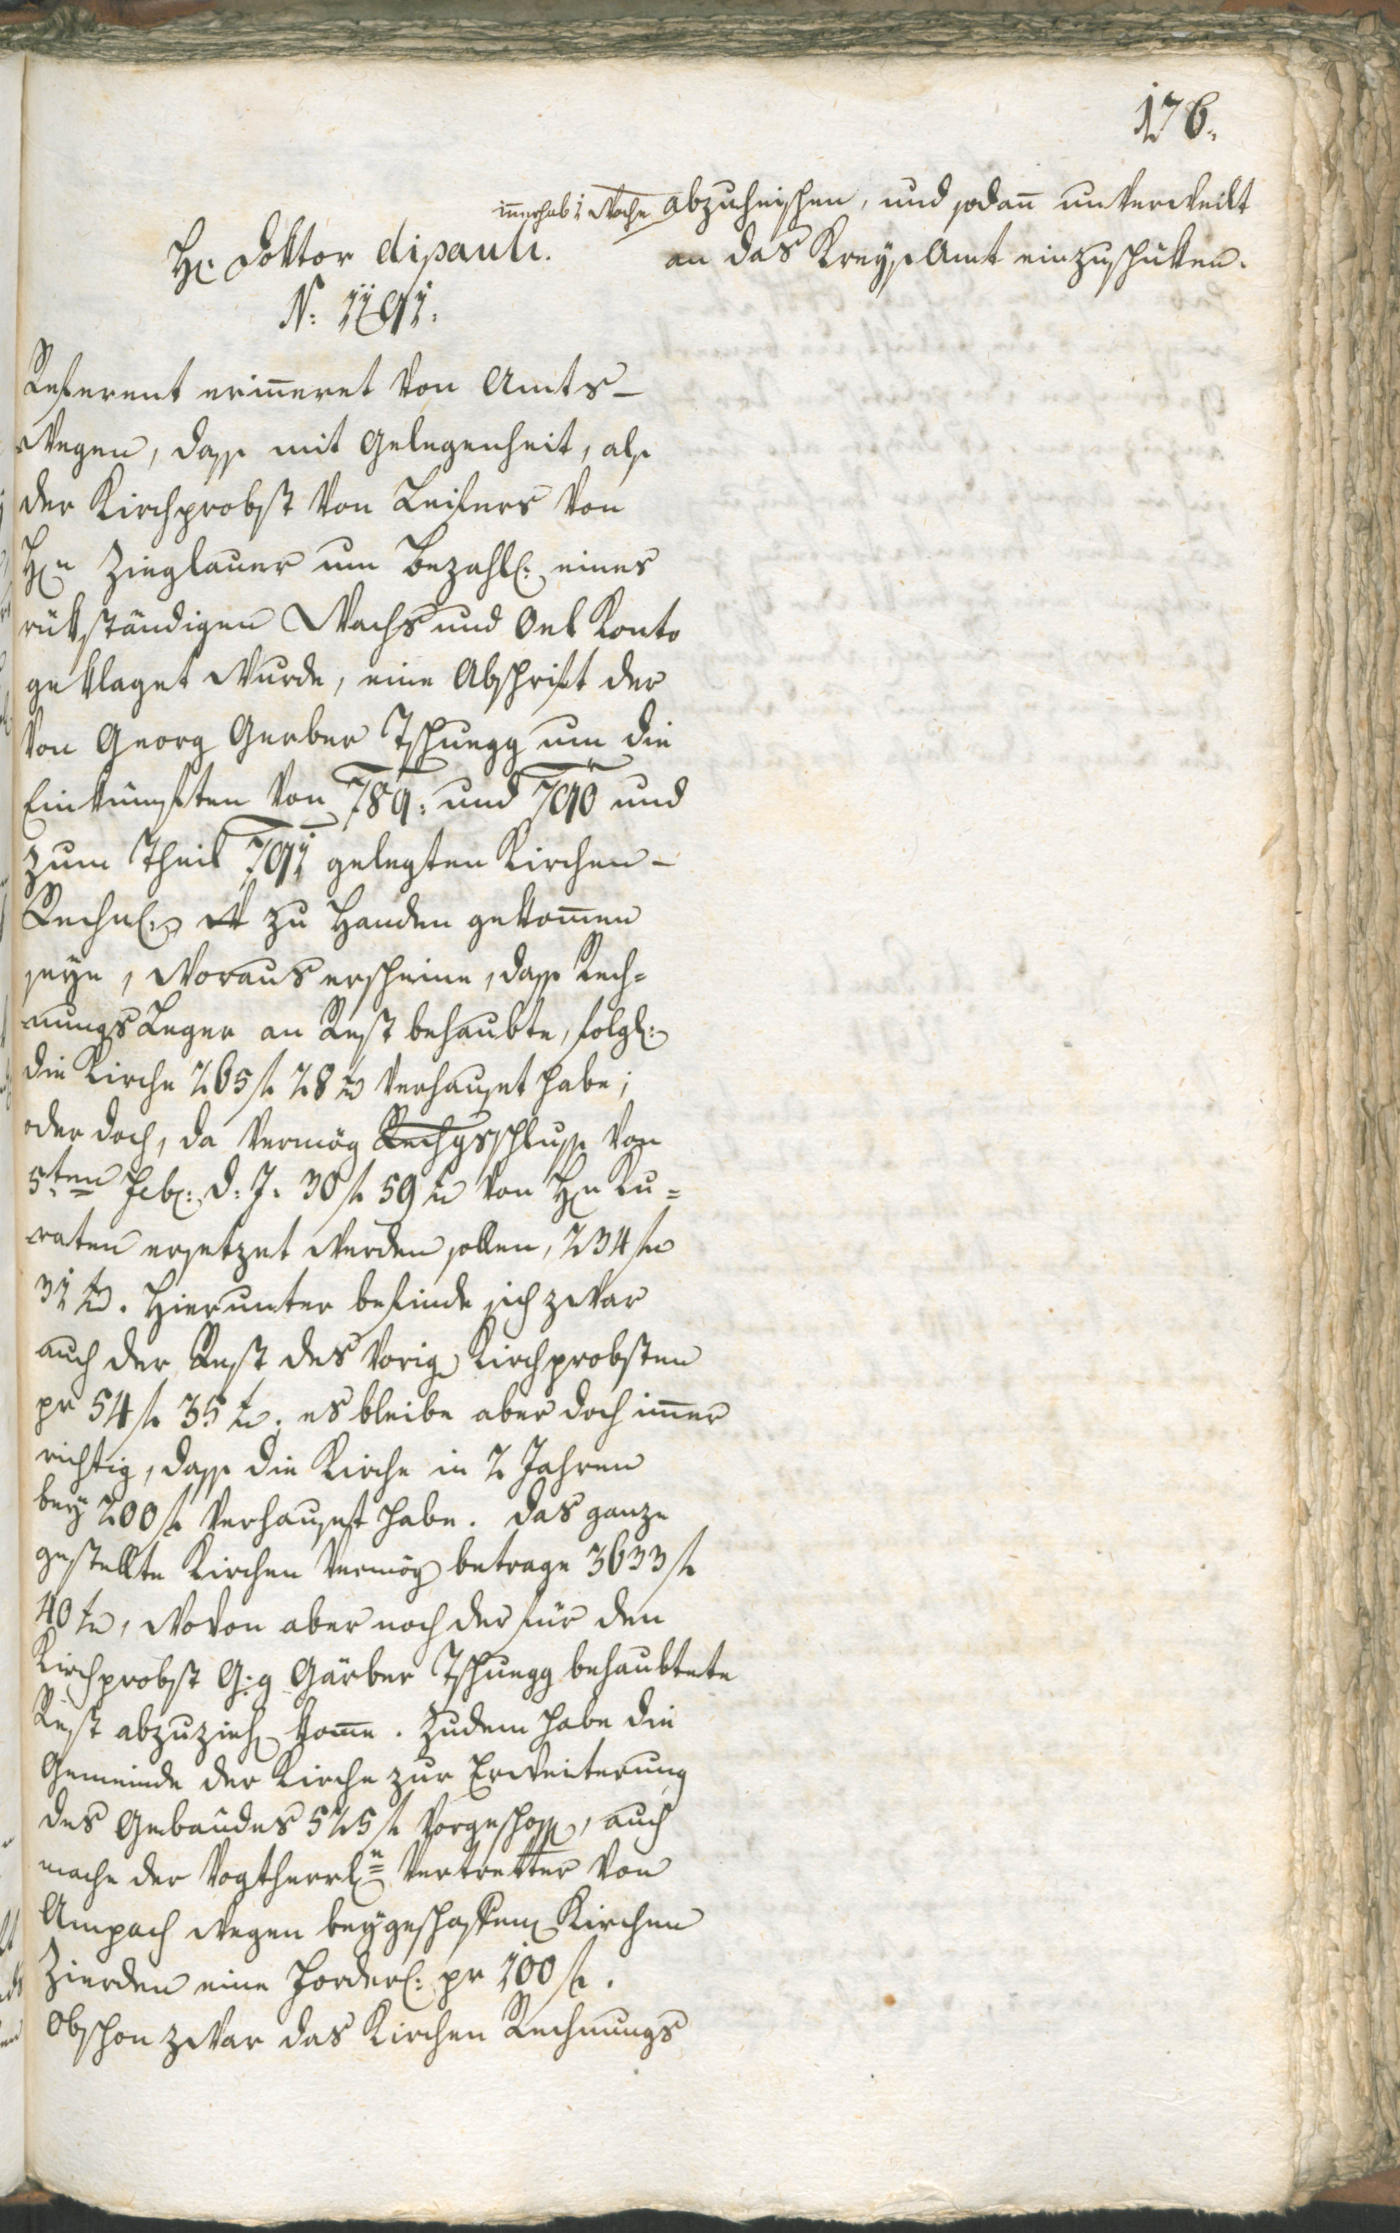 176.
innerhalb 1 Woche abzuheischen, und sodan̄ unverweilt
an das Kreyß Amt einzuschüken.
H: Doktor dipauli.
N: 1191.
Referent erin̄eret von Amts-
Wegen, dass mit Gelegenheit, als
der Kirchprobst von Leifers von
Hn Zieglauer um Bezahl: eines
rükständigen Wachs und Oel Konto
geklaget wurde, eine Abschrift der
von Georg Gerber Tschuegg um die
Einkünften von 789: und 790 und
zum Theil 791 gelegten Kirchen-
Rechn: zu Handen gekom̄en
seye, woraus erscheine, dass Rech-
nungs Leger an Rest behaubte, folgl:
die Kirche 265 f 28 xr verhauset habe;
oder doch, da vermög Rechgsschluss von
5ten Feb: d: J: 30 f 59 xr von Hn Ku-
raten ersetzet werden sollen, 234 f
31 xr. Hierunter befinde sich zwar
auch der Rest des vorig Kirchprobsten
pr 54 f 35 xr; es bleibe aber doch im̄er
richtig, dass die Kirche in 2 Jahren
bey 200 f verhauset habe. Das ganze
gestellte Kirchen Vermög betrage 3633 f
40 xr, wovon aber noch der für den
Kirchprobst G:g Gärber Tschuegg behaubtete
Rest abzuzieh kom̄e. Zudem habe die
Gemeinde der Kirche zur Erweiterung
des Gebaudes 525 f vorgeschoss, auch
mache der Vogtherrl=e Vertretter von
Ampach wegen beygeschaften Kirchen
Zierden eine Forder: pr 100 f.
Obschon zwar das Kirchen Rechnungs